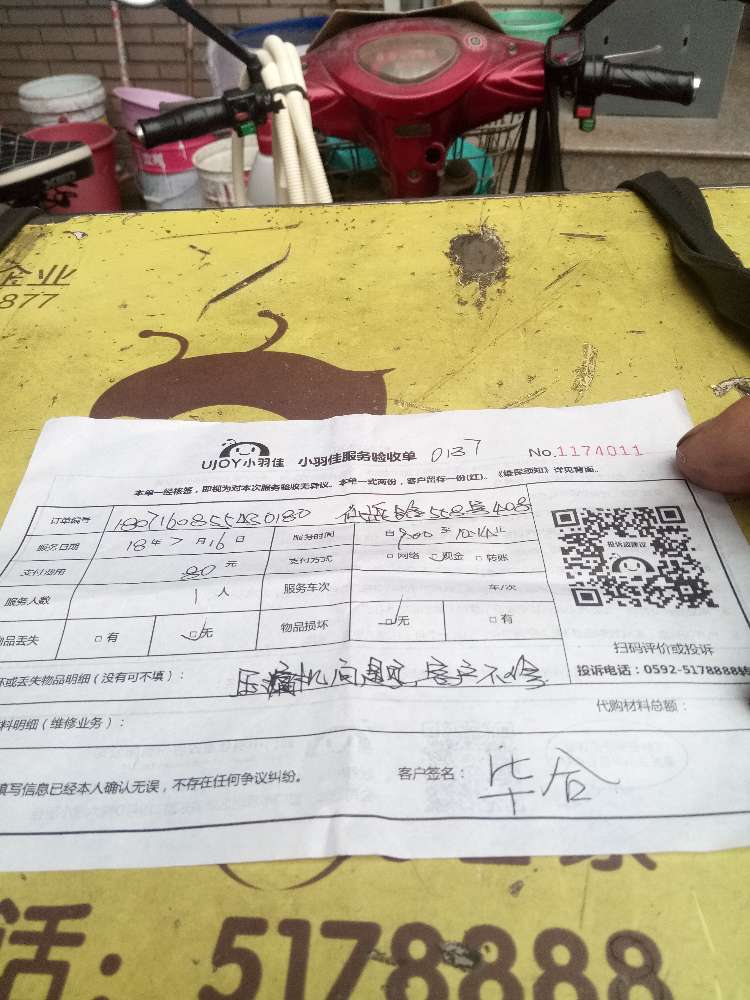 企业
877
UJOY小羽佳 小羽佳服务验收单 0137 No.1174011
本单一经核签，即视为对本次服务验收无异议。本单一式两份，客户留存一份(红)。《维保须知》详见背面。
订单编号 558号408
服务日期 18年7月16日 服务时间
支付费用 80元 支付方式 □网络 □现金 □转账
服务人数 1人 服务车次 车/次
物品丢失 □有 □无 物品损坏 □无 □有
投诉或建议
扫码评价或投诉
投诉电话：0592-5178888转
坏或丢失物品明细（没有可不填）： 客户不修
代购材料总额：
料明细（维修业务）：
填写信息已经本人确认无误，不存在任何争议纠纷。 客户签名：
话：5178888